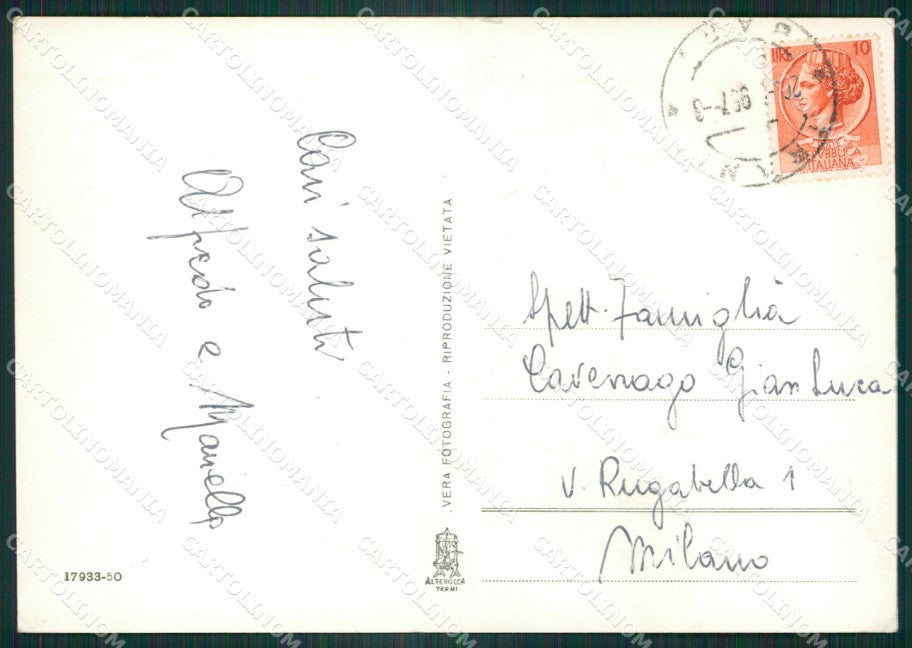 Cari saluti
Alfredo e Mariella
VERA FOTOGRAFIA - RIPRODUZIONE VIETATA
17933-50
ALTEROCCA
TERNI
LIRE 10
REPUBBLICA
ITALIANA
Spett. Famiglia
Cavenago Gian Luca
V. Rugabella 1
Milano
CARTOLINOMANIA